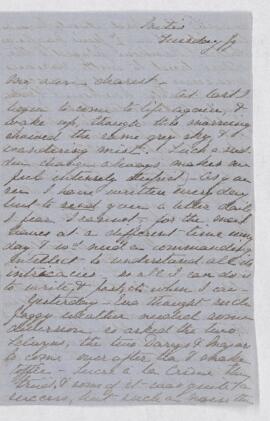 Tuesday
my own dearest
at last I
begin to come to life again, &
wake up, though this morning
showed the same grey sky &
wandering mist. Such a sud
den change always makes me
feel entirely stupid. As you
see I have written every day
but to send you a letter daily
I fear I cannot, for the mail
leaves at a different time every
day & wd need a commanding
intellect to understand all its
intricacies so all I can do is
to write & post it when I can
Yesterday Eva thought such
foggy weather needed some
diversion so asked the two
the two & Major
to come over after tea & make
toffee. Sucre à la Crème they
tried, & some of it was quite a
success, but such a mess the